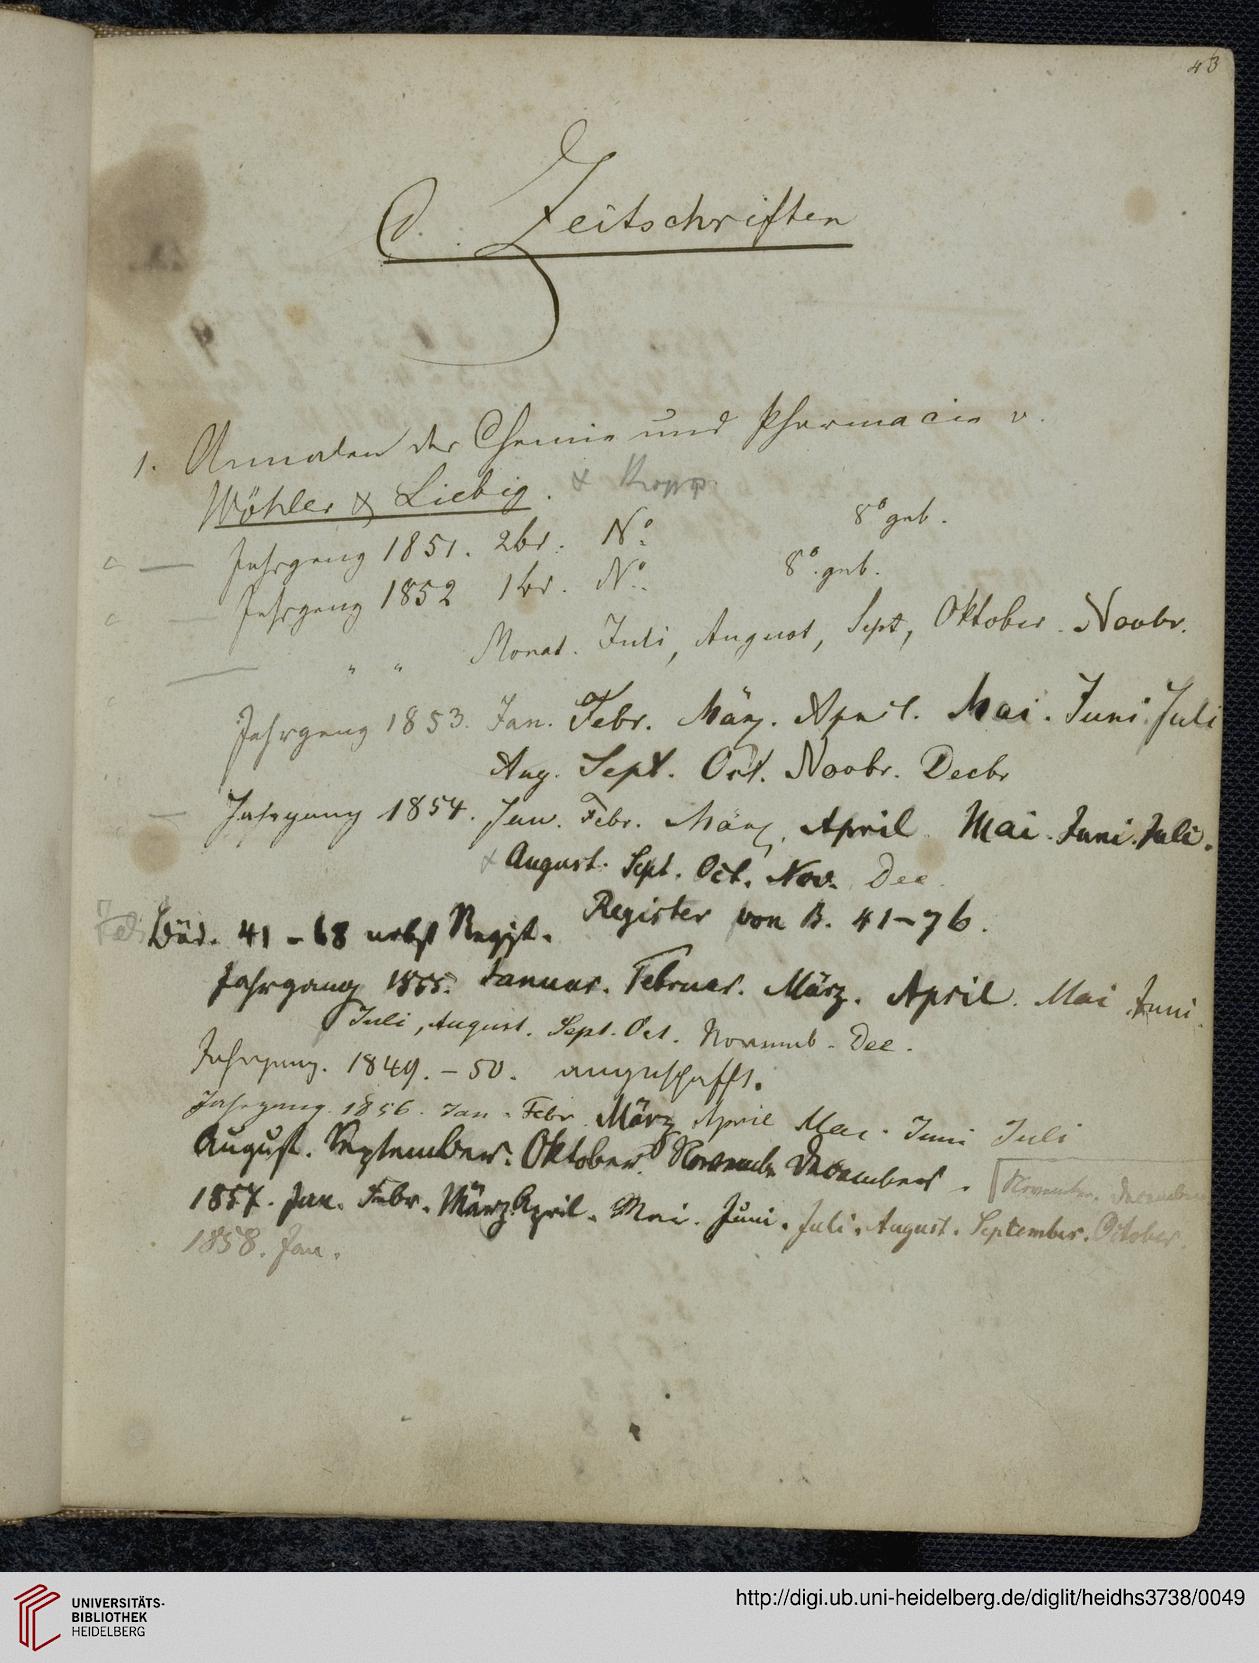 43
C. Zeitschriften
1. Annalen der Chemie und Pharmacie v.
Wöhler & Liebig. & Kopp
Jahrgang 1851. 2 bd. No. 8o geb.
Jahrgang 1852 1 bd. No. 8o. geb.
" " Monat. Juli, August, Sept, Oktober. Novbr.
Jahrgang 1853. Jan. Febr. März. April. Mai. Juni. Juli
Aug. Sept. Oct. Novbr. Decbr
Jahrgang 1854. Jan. Febr. März. April. Mai. Juni. Juli.
August. Sept. Oct. Nov. Dec.
Bäd. 41-68 nebst Regist. Register von B. 41-76.
Jahrgang 1855. Januar. Februar. März. April. Mai Juni.
Juli, August. Sept. Oct. Novemb. Dec.
Jahrgang. 1849.-50. angeschafft.
Jahrgang. 1856. Jan. Febr. März April Mai. Juni Juli
August. September. Oktober. Novemb. Decembers. November. December
1857. Jan. Febr. März April. Mai. Juni. Juli. August. September. October.
1858. Jan.
UNIVERSITÄTS-
BIBLIOTHEK
HEIDELBERG
http://digi.ub.uni-heidelberg.de/diglit/heidhs3738/0049